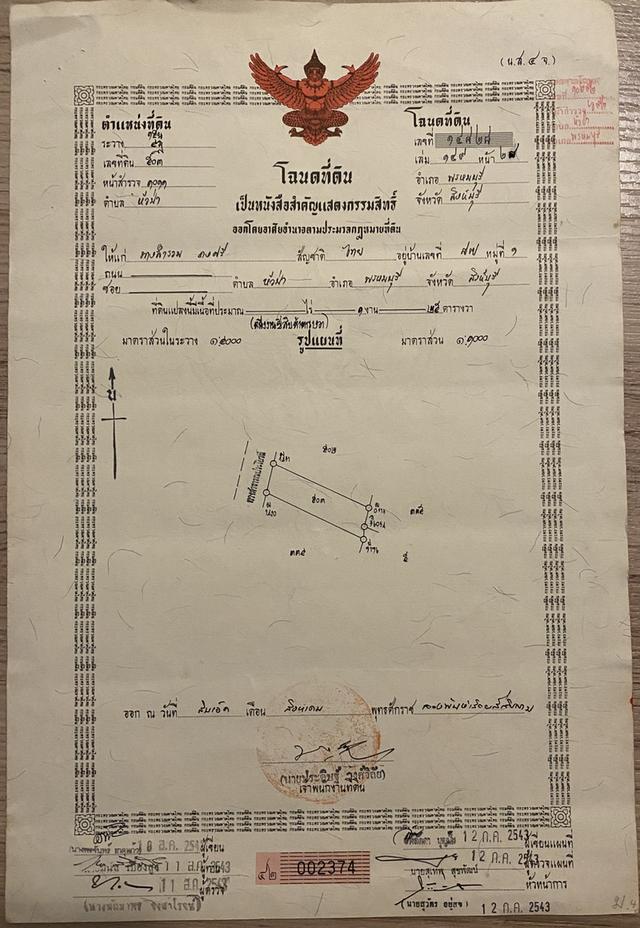 (น.ส. ๔ จ.)
ตำแหน่งที่ดิน
ระวาง
เลขที่ดิน ๕๐๓
หน้าสำรวจ ๑๐๑๑
ตำบล หัวป่า
โฉนดที่ดิน
เลขที่ ๑๔๘๒๘
เล่ม ๑๔๙ หน้า ๒๘
อำเภอ พรหมบุรี
จังหวัด สิงห์บุรี
พรหมบุรี
โฉนดที่ดิน
เป็นหนังสือสำคัญแสดงกรรมสิทธิ์
ออกโดยอาศัยอำนาจตามประมวลกฎหมายที่ดิน
ให้แก่ นางสำรวม คงศรี สัญชาติ ไทย อยู่บ้านเลขที่ หมู่ที่ ๑
ถนน
ซอย ตำบล หัวป่า อำเภอ พรหมบุรี จังหวัด สิงห์บุรี
ที่ดินแปลงนี้มีเนื้อที่ประมาณ ไร่ ๑ งาน ๒๕ ตารางวา
(หนึ่งงานยี่สิบห้าตารางวา)
มาตราส่วนในระวาง ๑:๔๐๐๐ รูปแผนที่ มาตราส่วน ๑:๑๐๐๐
น
๕๐๒
๕๐๓
๓๓๕
๓๓๔
ออก ณ วันที่ สิบเอ็ด เดือน สิงหาคม พุทธศักราช สองพันห้าร้อยสี่สิบสาม
(นายประดิษฐ์ วงศ์วิถัย)
เจ้าพนักงานที่ดิน
ผู้เขียน
11 ส.ค. 2543
11 ส.ค. 2543 ผู้ตรวจ
๔๒ 002374
12 ก.ค. 2543 ผู้เขียนแผนที่
12 ก.ค. 2543 ผู้ตรวจแผนที่
นายสุเทพ สุขพัฒน์
หัวหน้าการ
(นายสุวัตร อยู่คง) 12 ก.ค. 2543